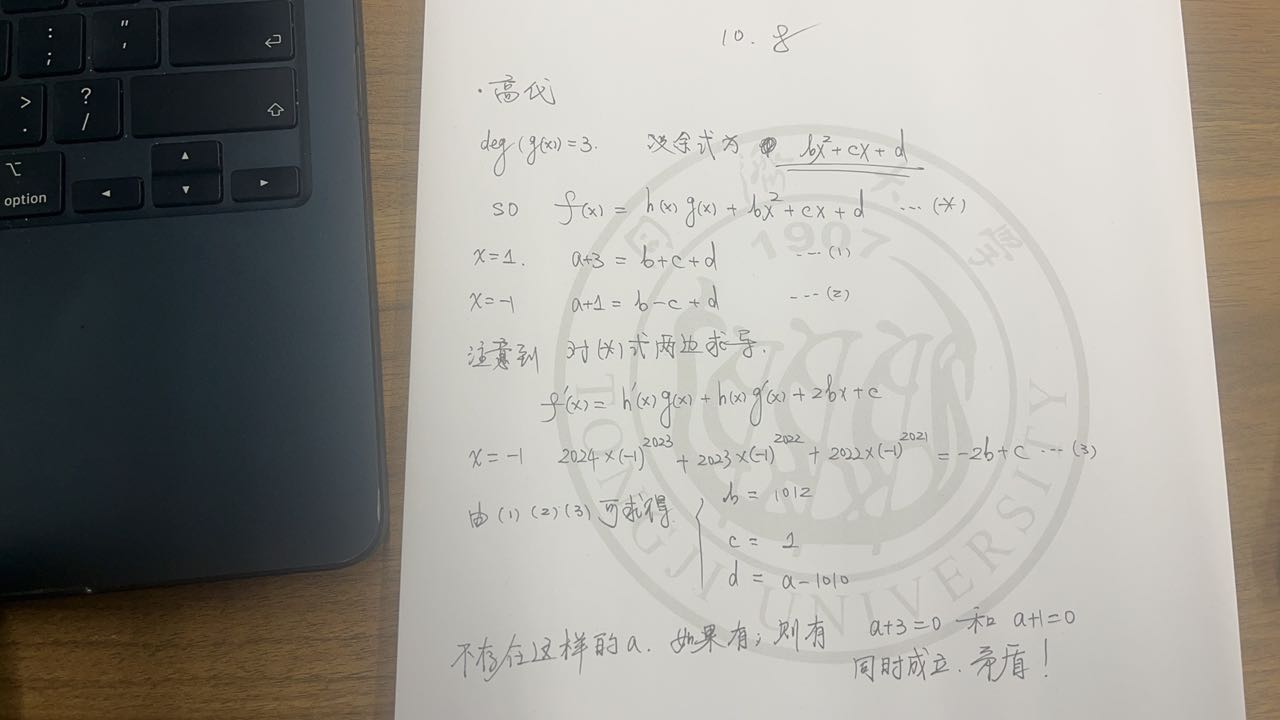 10. 8
· 高代
deg(g(x))=3. 设余式为 bx²+cx+d
so f(x) = h(x)g(x) + bx²+cx+d ···(*)
x=1. a+3 = b+c+d ···(1)
x=-1 a+1 = b-c+d ---(2)
注意到 对(*)式两边求导.
f'(x) = h'(x)g(x) + h(x)g'(x) + 2bx+c
x=-1 2024×(-1)²⁰²³ + 2023×(-1)²⁰²² + 2022×(-1)²⁰²¹ = -2b+c ···(3)
由(1)(2)(3)可求得 { b = 1012
c = 1
d = a-1010
不存在这样的a. 如果有, 则有 a+3=0 和 a+1=0
同时成立. 矛盾!
: ;
" '
> .
? /
option
1907
TONGJI UNIVERSITY